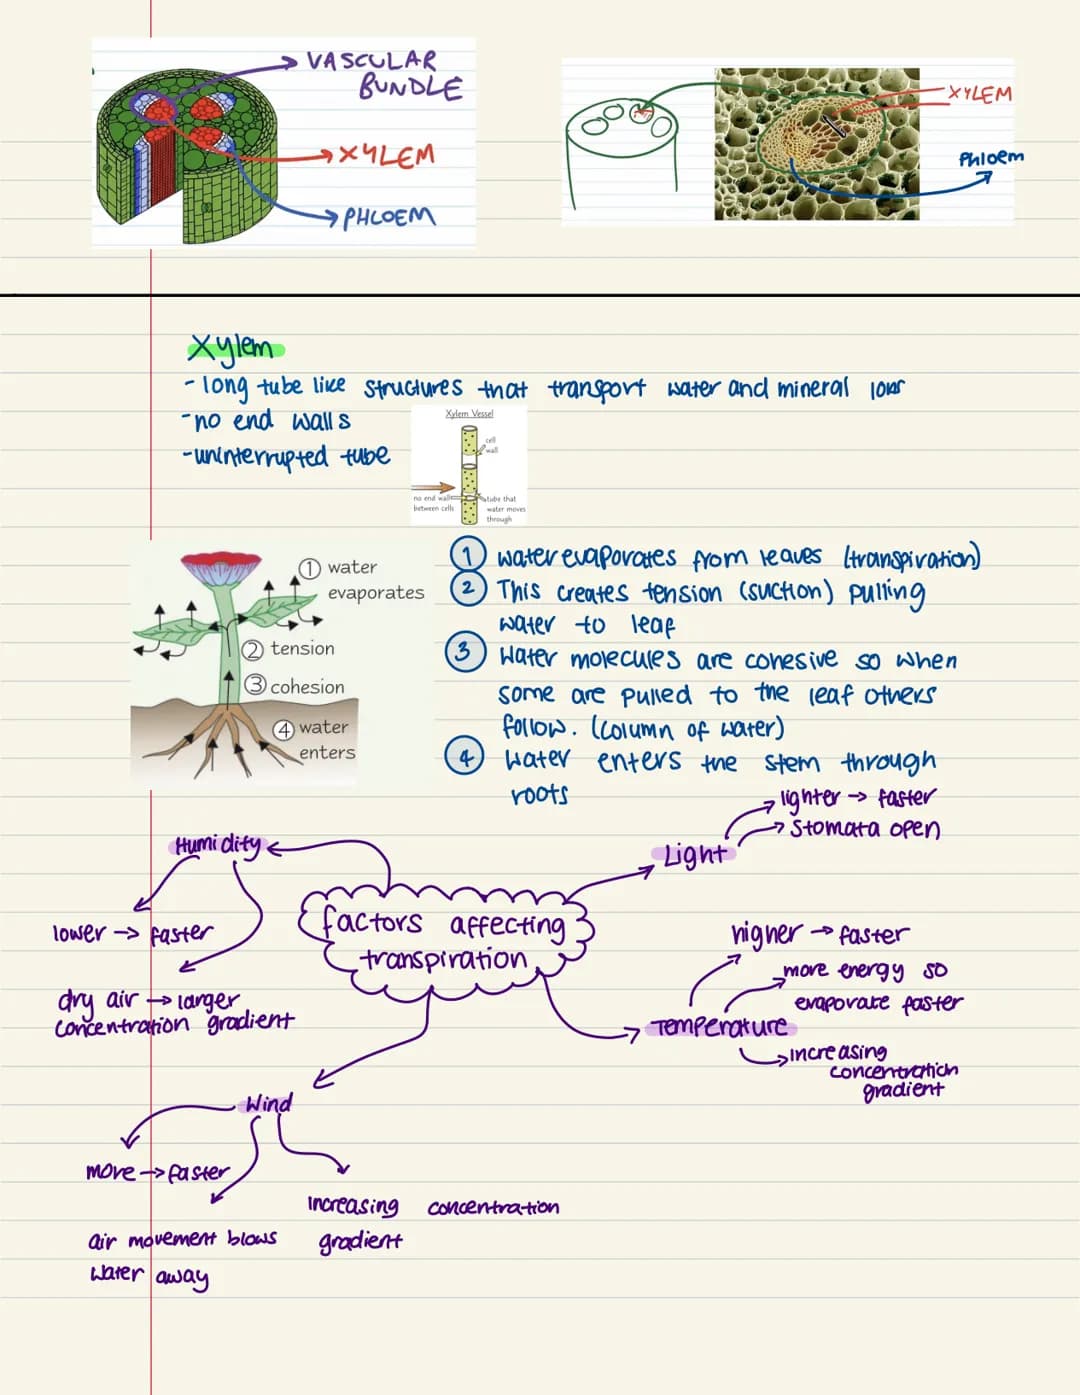 VASCULAR
BUNDLE
XYLEM
PHLOEM
XYLEM
Phloem
Xylem
- long tube like structures that transport water and mineral ions
- no end walls
- uninterrupted tube
Xylem Vessel
cell
wall
no end walls
between cells
tube that
water moves
through
1 water
evaporates
2 tension
3 cohesion
4 water
enters
1 water evaporates from leaves (transpiration)
2 This creates tension (suction) pulling
water to leaf
3 Water molecules are cohesive so when
some are pulled to the leaf others
follow. (column of water)
4 Water enters the stem through
roots
factors affecting
transpiration
Light
lighter → faster
Stomata open
Humidity
lower → faster
dry air → larger
concentration gradient
Temperature
higher → faster
more energy so
evaporate faster
increasing
concentration
gradient
Wind
more → faster
air movement blows
water away
increasing concentration
gradient